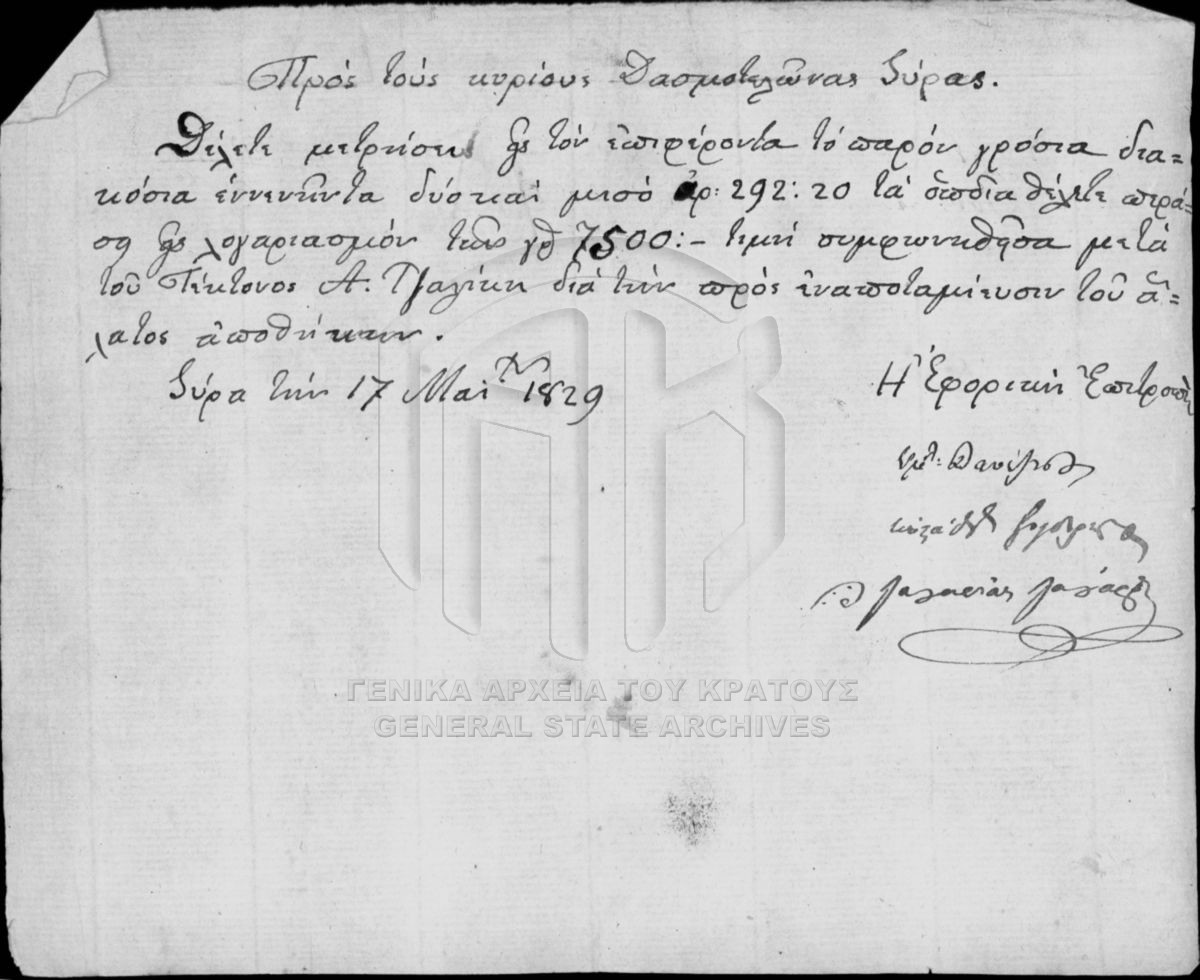 Πρός τούς κυρίους Δασμοτελώνας Σύρας.
Θέλετε μετρήσει εἰς τόν ἐπιφέροντα τό παρόν γρόσια δια=
κόσια ἐννενῆντα δύο καί μισό ἀρ: 292:20 τά ὁποῖα θέλετε περά=
σῃ εἰς λογαριασμόν τῶν γρ 7500:- τιμή συμφωνηθῆσα μετά
τοῦ Τέκτονος Α. διά τήν πρός ἐναποταμίευσιν τοῦ ἅ=
λατος ἀποθήκην.
Σύρα τήν 17 Μαΐου 1829
Ἡ Ἐφορική Ἐπιτροπή
ΓΕΝΙΚΑ ΑΡΧΕΙΑ ΤΟΥ ΚΡΑΤΟΥΣ
GENERAL STATE ARCHIVES